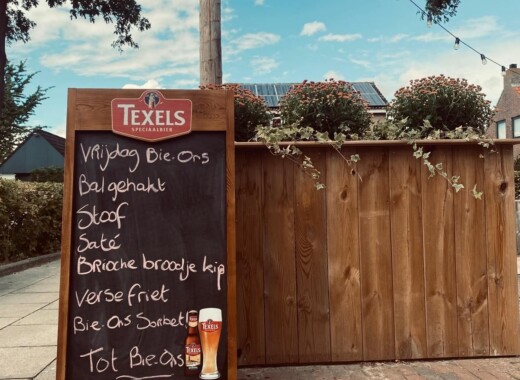 TEXELS
SPECIAALBIER
Vrijdag Bie-Ons
Bal gehakt
Stoof
Saté
Brioche broodje kip
Verse friet
Bie-Ons Sorbet!
Tot Bie-Ons
TEXELS
TEXELS